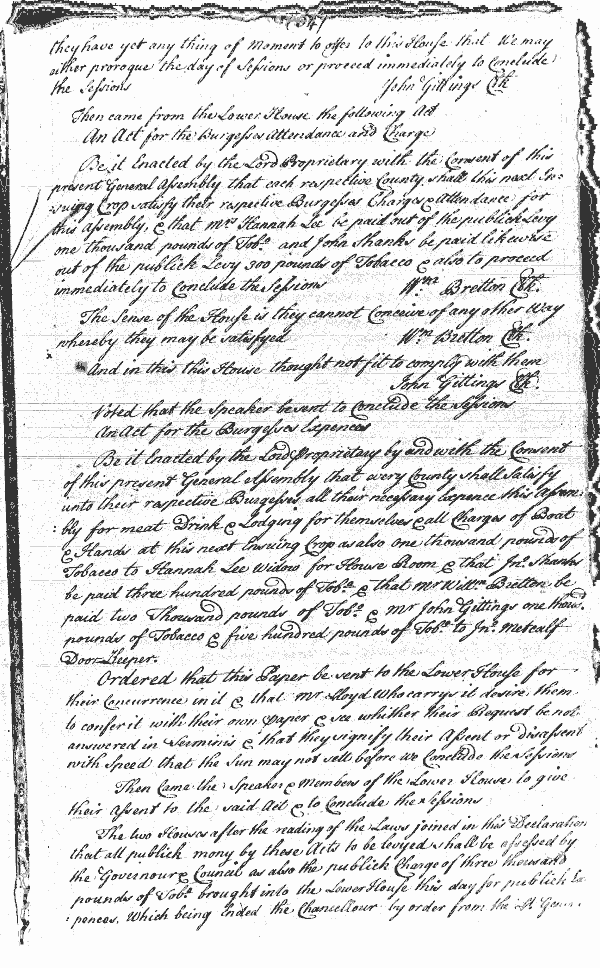 547
they have yet any thing of Moment to offer to this House that We may
either proroque the day of Sessions or proceed immediately to Conclude
the Sessions John Gittings Clk
Then came from the Lower House the following Act
An Act for the Burgesses Attendance and Charge
Be it Enacted by the Lord Proprietary with the Consent of this
present General Assembly that each respective County shall this next In=
suing Crop satisfy their respective Burgesses Charges & Attendance for
this Assembly, & that Mrs Hannah Lee be paid out of the publick Levy
one thousand pounds of Tobo. and John Shanks be paid likewise
out of the publick Levy 300 pounds of Tobacco & also to proceed
immediately to Conclude the Sessions Wm Bretton Clk.
The Sense of the House is they cannot Conceive of any other Way
whereby they may be satisfyed Wm Bretton Clk.
And in this this House thought not fit to comply with them
John Gittings Clk.
Voted that the Speaker be sent to Conclude the Sessions
An Act for the Burgesses Expences
Be it Enacted by the Lord Proprietary by and with the Consent
of this present General Assembly that every County shall Satisfy
unto their respective Burgesses all their necessary Expence this Assem=
bly for meat Drink & Lodging for themselves & all Charges of Boat
& Hands at this next Ensuing Crop as also one thousand pounds of
Tobacco to Hannah Lee Widow for House Room & that Jno. Shanks
be paid three hundred pounds of Tobo. & that mr Willm Bretton be
paid two Thousand pounds of Tobo. & mr John Gittings one thous.
pounds of Tobacco & five hundred pounds of Tobo. to Jno. Metcalf
Door Keeper.
Ordered that this Paper be sent to the Lower House for
their Concurrence in it & that mr Lloyd Who carrys it desire them
to confer it with their own paper & see whither their Request be not
answered in Terminis & that they signify their Assent or Disassent
with Speed that the Sun may not sett before we Conclude the Sessions
Then Came the Speaker & Members of the Lower House to give
their Assent to the said Act & to Conclude the Sessions
The two Houses after the reading of the Laws joined in this Declaration
that all publick mony by these Acts to be levyed shall be assessed by
the Governour & Council as also the publick Charge of three thousand
pounds of Tobo. brought into the Lower House this day for publick Ex
pences. Which being Ended the Chancellour by order from the Lt Gener.